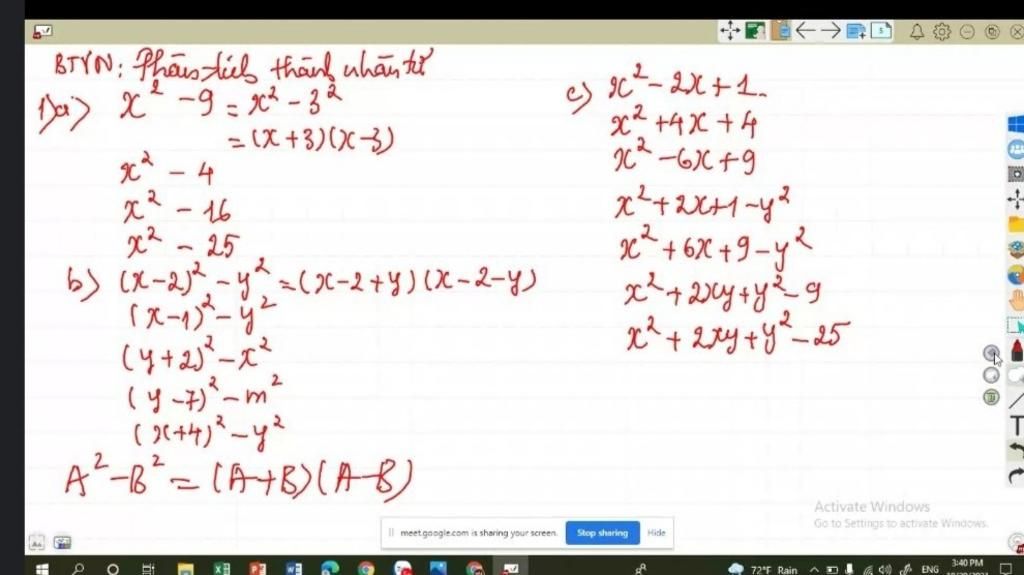 BTVN: Phân tích thành nhân tử
1) a) x² - 9 = x² - 3²
= (x+3)(x-3)
x² - 4
x² - 16
x² - 25
b) (x-2)² - y² = (x-2+y)(x-2-y)
(x-1)² - y²
(y+2)² - x²
(y-7)² - m²
(x+4)² - y²
A² - B² = (A+B)(A-B)
c) x² - 2x + 1
x² + 4x + 4
x² - 6x + 9
x² + 2x + 1 - y²
x² + 6x + 9 - y²
x² + 2xy + y² - 9
x² + 2xy + y² - 25
Activate Windows
Go to Settings to activate Windows.
meet.google.com is sharing your screen. Stop sharing Hide
72°F Rain ENG 3:40 PM